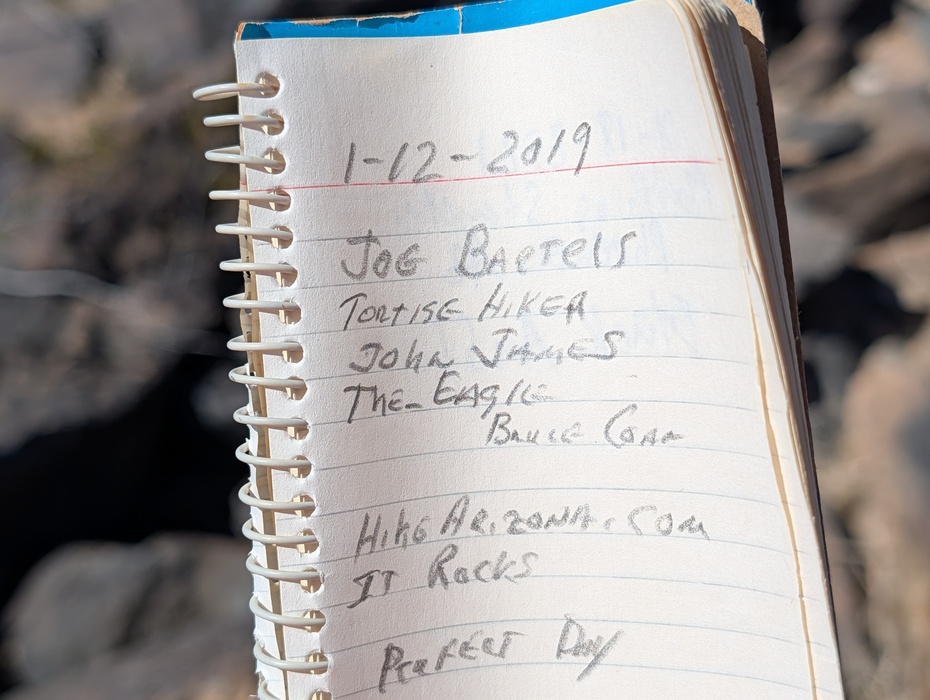 1-12-2019
JOE BARTELS
TORTISE HIKER
JOHN JAMES
THE_EAGLE
BRUCE
HIKEARIZONA.COM
IT ROCKS
PERFECT DAY